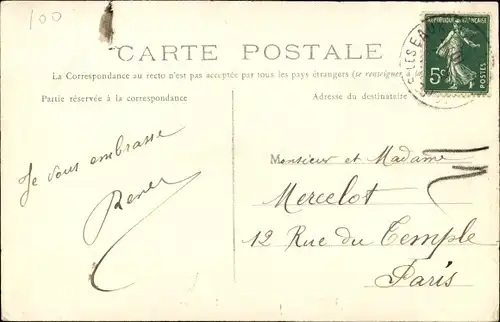 100
CARTE POSTALE
La Correspondance au recto n'est pas acceptée par tous les pays étrangers (se renseigner
Partie réservée à la correspondance
Adresse du destinataire
RÉPUBLIQUE FRANÇAISE
5c
POSTES
Je vous embrasse
Monsieur et Madame
Mercelot
12 Rue du Temple
Paris